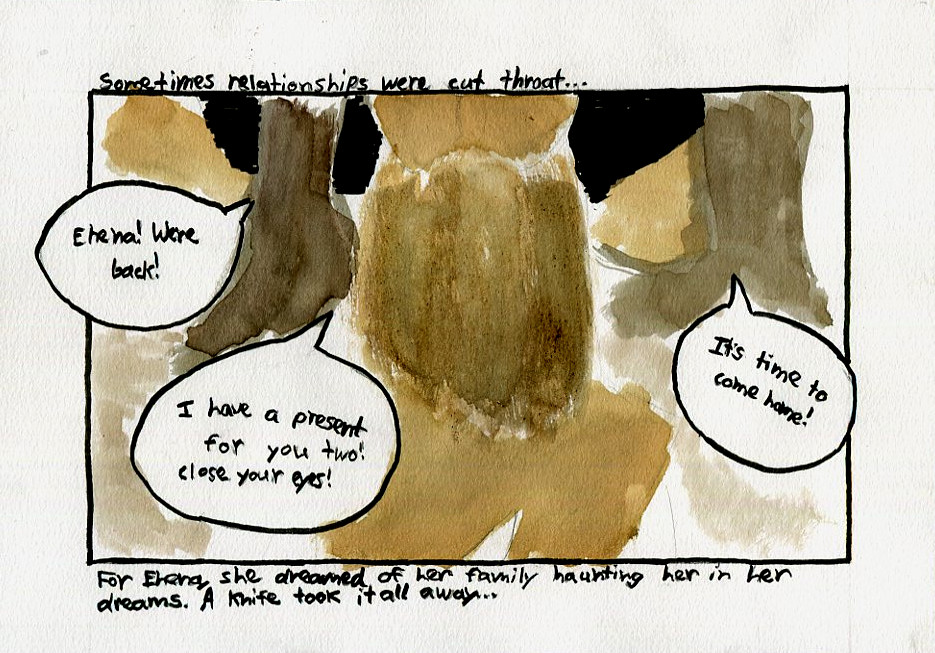 Sometimes relationships were cut throat...
Ehena! Were
back!
I have a present
for you two!
close your eyes!
It's time to
come home!
For Ehena, she dreamed of her family haunting her in her
dreams. A knife took it all away...